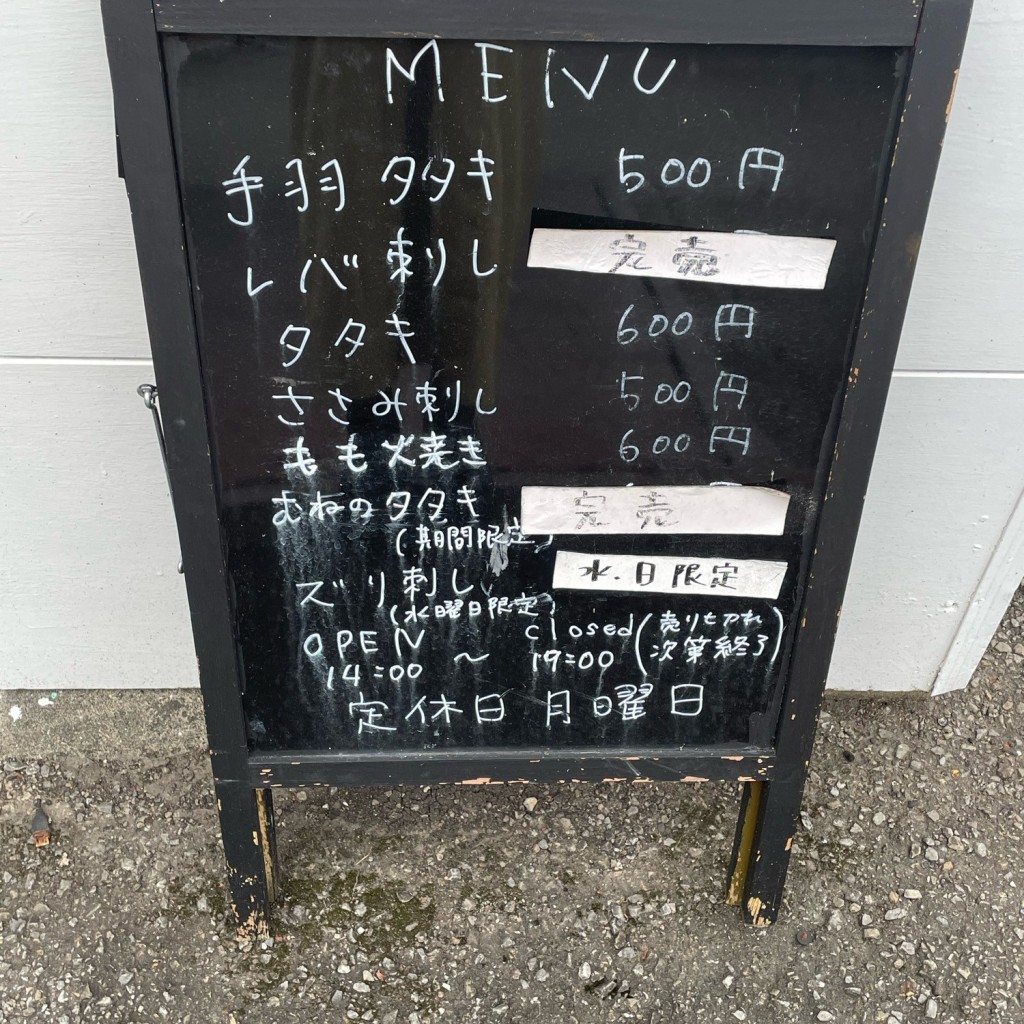 MENU
手羽 タタキ 500円
レバ刺し 完売
タタキ 600円
ささみ刺し 500円
もも火焼き 600円
むねのタタキ 完売
(期間限定)
ズリ刺し 水.日限定
(水曜日限定)
OPEN 14:00 ～ closed 19:00 (売りもきれ次第終了)
定休日 月曜日